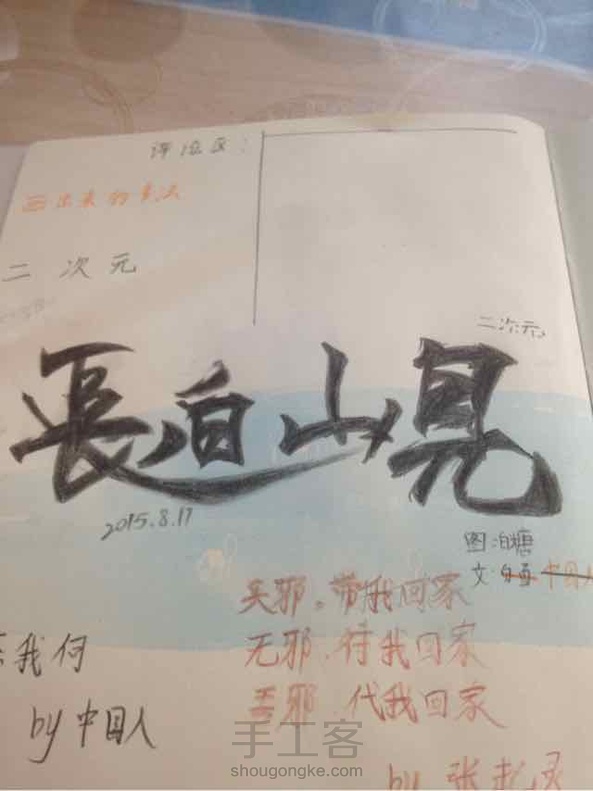 评论区:
画出来的书法
二次元
二次元
長白山見
2015.8.17
图:白塘
文:
关邪。带我回家
无邪.待我回家
吾邪.代我回家
我何
by 中国人
by 张起灵
手工客
shougongke.com